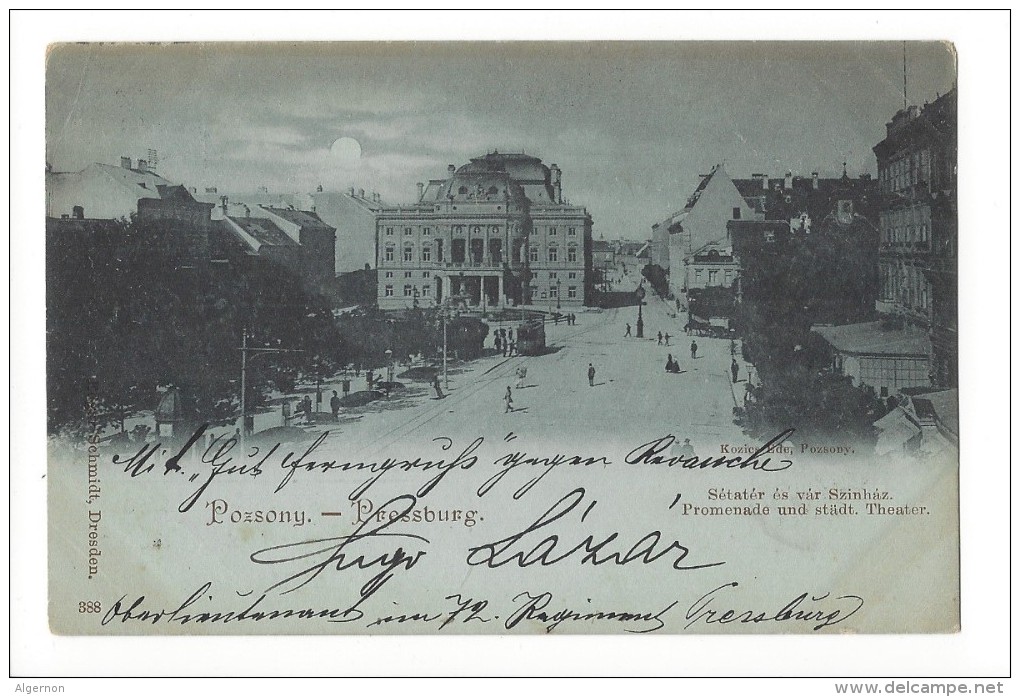 Kozics Ede, Pozsony.
Mit "Gut fermgruß" gegen Revanche
Sétatér és vár Szinház.
Promenade und städt. Theater.
Pozsony. – Pressburg.
Hugo Lázár
Oberlieutenant im 72. Regiment Pressburg
388
Schmidt, Dresden.
Algernon
www.delcampe.net